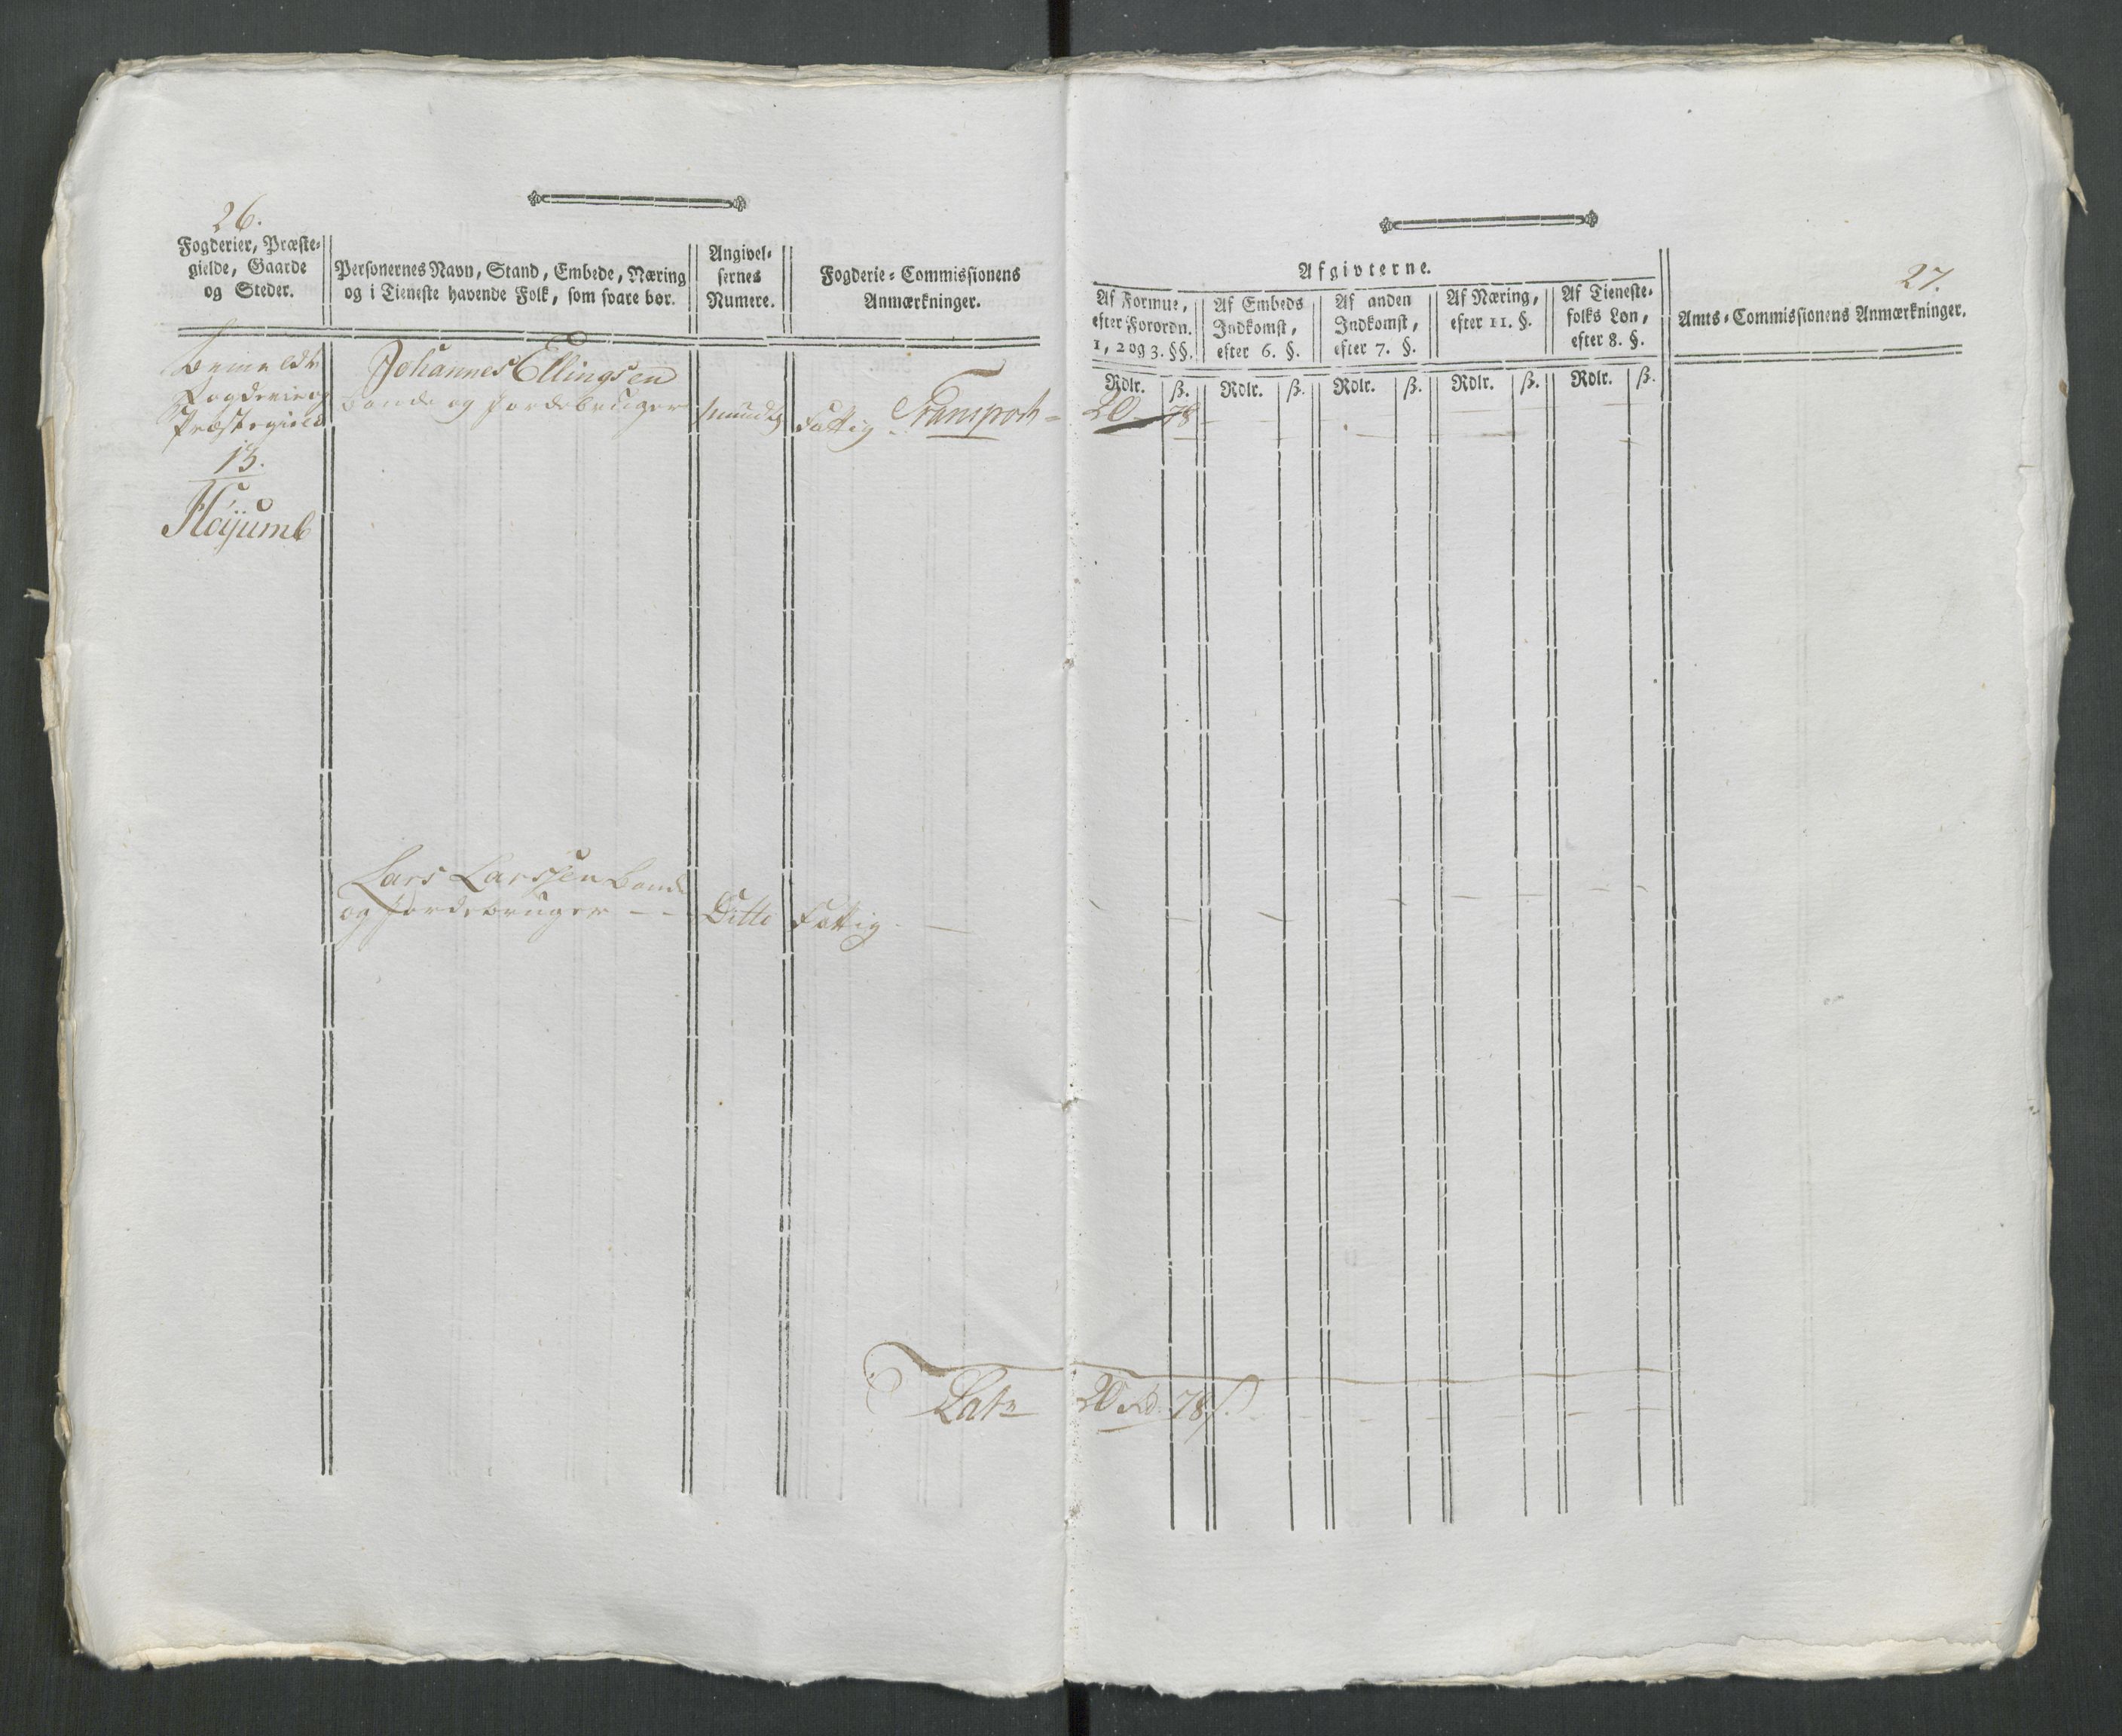 26.
Fogderier, Præste-
gielde, Gaarde
og Steder.
Personernes Navn, Stand, Embede, Næring
og i Tieneste havende Folk, som svare bør.
Angivel-
sernes
Numere.
Fogderie-Commissionens
Anmærkninger.
Bemeldte
Fogderie og
Præstegield
13.
Johannes Ellingsen
bonde og Jordebruger
Mundtlig
Fattig
Transport
Lars Larssen bonde
og Jordebruger - -
Ditto
Fattig
Lat.
27.
Afgivterne.
Af Formue,
efter Forordn.
1, 2 og 3. §§.
Af Embeds
Indkomst,
efter 6. §.
Af anden
Indkomst,
efter 7. §.
Af Næring,
efter 11. §.
Af Tieneste-
folks Løn,
efter 8. §.
Amts-Commissionens Anmærkninger.
Rdlr. ß. Rdlr. ß. Rdlr. ß. Rdlr. ß. Rdlr. ß.
20 - 78
20 Rd. 78 ß.